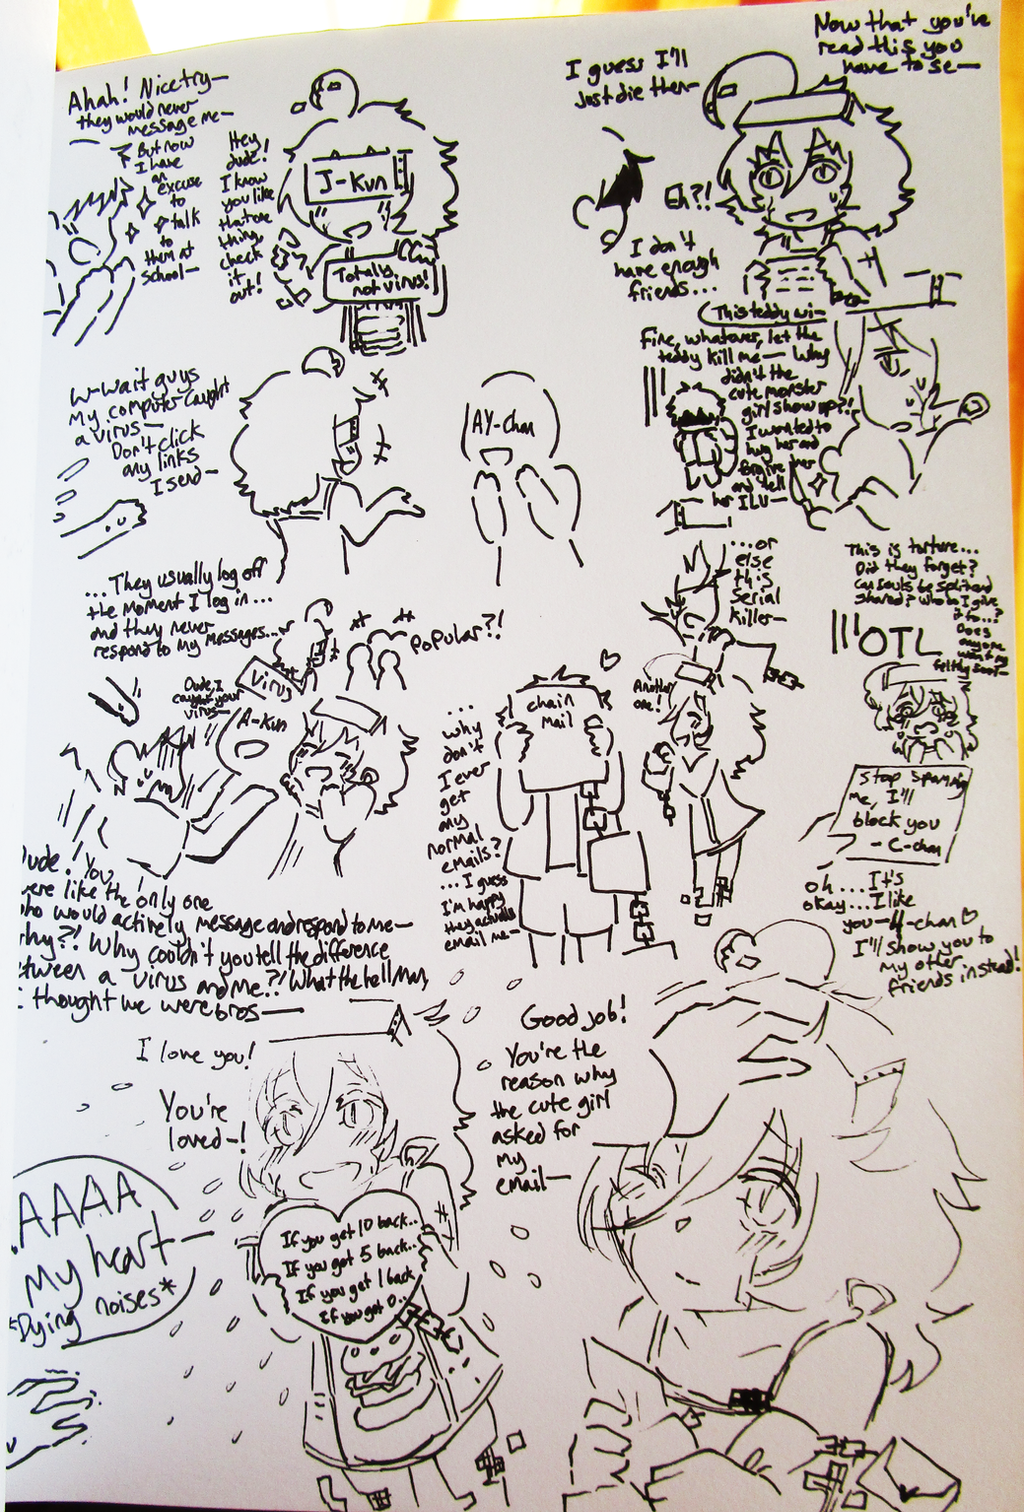 Ahah! Nice try—
they would never
message me—
But now
I have
an
excuse
to
talk
to
them at
school—
Hey
dude!
I know
you like
that one
thing,
check
it
out!
J-Kun
Totally
not virus!
I guess I'll
just die then—
Now that you've
read this you
have to se—
Eh?!
I don't
have enough
friends...
This teddy wi—
Fine, whatever, let the
teddy kill me— Why
didn't the
cute monster
girl show up?!
I wanted to
hug her and
forgive her
and tell
her ILU—
W-wait guys
My computer caught
a virus—
Don't click
any links
I send—
AY-chan
...They usually log off
the moment I log in...
and they never
respond to my messages...
Virus
Popular?!
Dude, I
caught your
virus—
A-Kun
Dude! You
were like the only one
who would actively message and respond to me—
Why?! Why couldn't you tell the difference
between a virus and me?! What the hell man,
I thought we were bros—
...or
else
this
serial
killer—
Another
one!
chain
mail
...
why
don't
I ever
get
any
normal
emails?
...I guess
I'm happy
they actually
email me—
This is torture...
Did they forget?
Can souls be split and
shared? Who do I give
it to...?
Does
anyone
want my
filthy soul—
OTL
Stop spamming
me, I'll
block you
- C-chan
oh... It's
okay... I like
you—H-chan♡
I'll show you to
my other
friends instead!
I love you!
You're
loved—!
AAAA
My heart—
*Dying noises*
If you get 10 back..
If you got 5 back..
If you get 1 back
If you got 0..
Good job!
You're the
reason why
the cute girl
asked for
my
email—